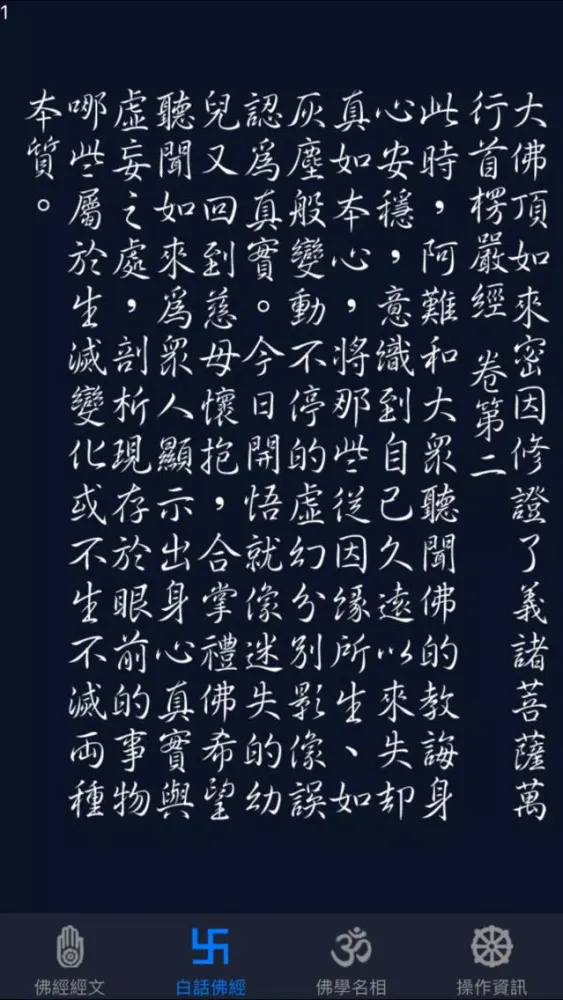 1
大佛頂如來密因修證了義諸菩薩萬
行首楞嚴經 卷第二
此時，阿難和大眾聽聞佛的教誨身
心安穩，意識到自己久遠以來失却
真如本心，將那些從因緣所生、如
灰塵般變動不停的虛幻分別影像誤
認為真實。今日開悟就像迷失的幼
兒又回到慈母懷抱，合掌禮佛希望
聽聞如來為眾人顯示出身心真實與
虛妄之處，剖析現存於眼前的事物
哪些屬於生滅變化或不生不滅兩種
本質。
佛經經文
白話佛經
佛學名相
操作資訊